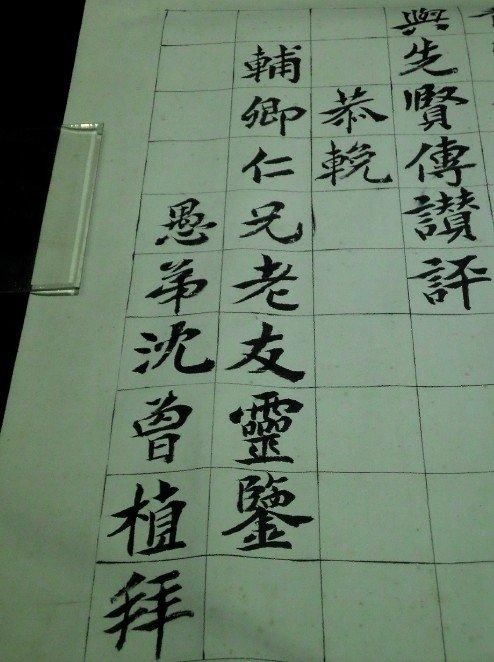 與先賢傳讃評
恭輓
輔卿仁兄老友靈鑒
愚弟沈曾植拜